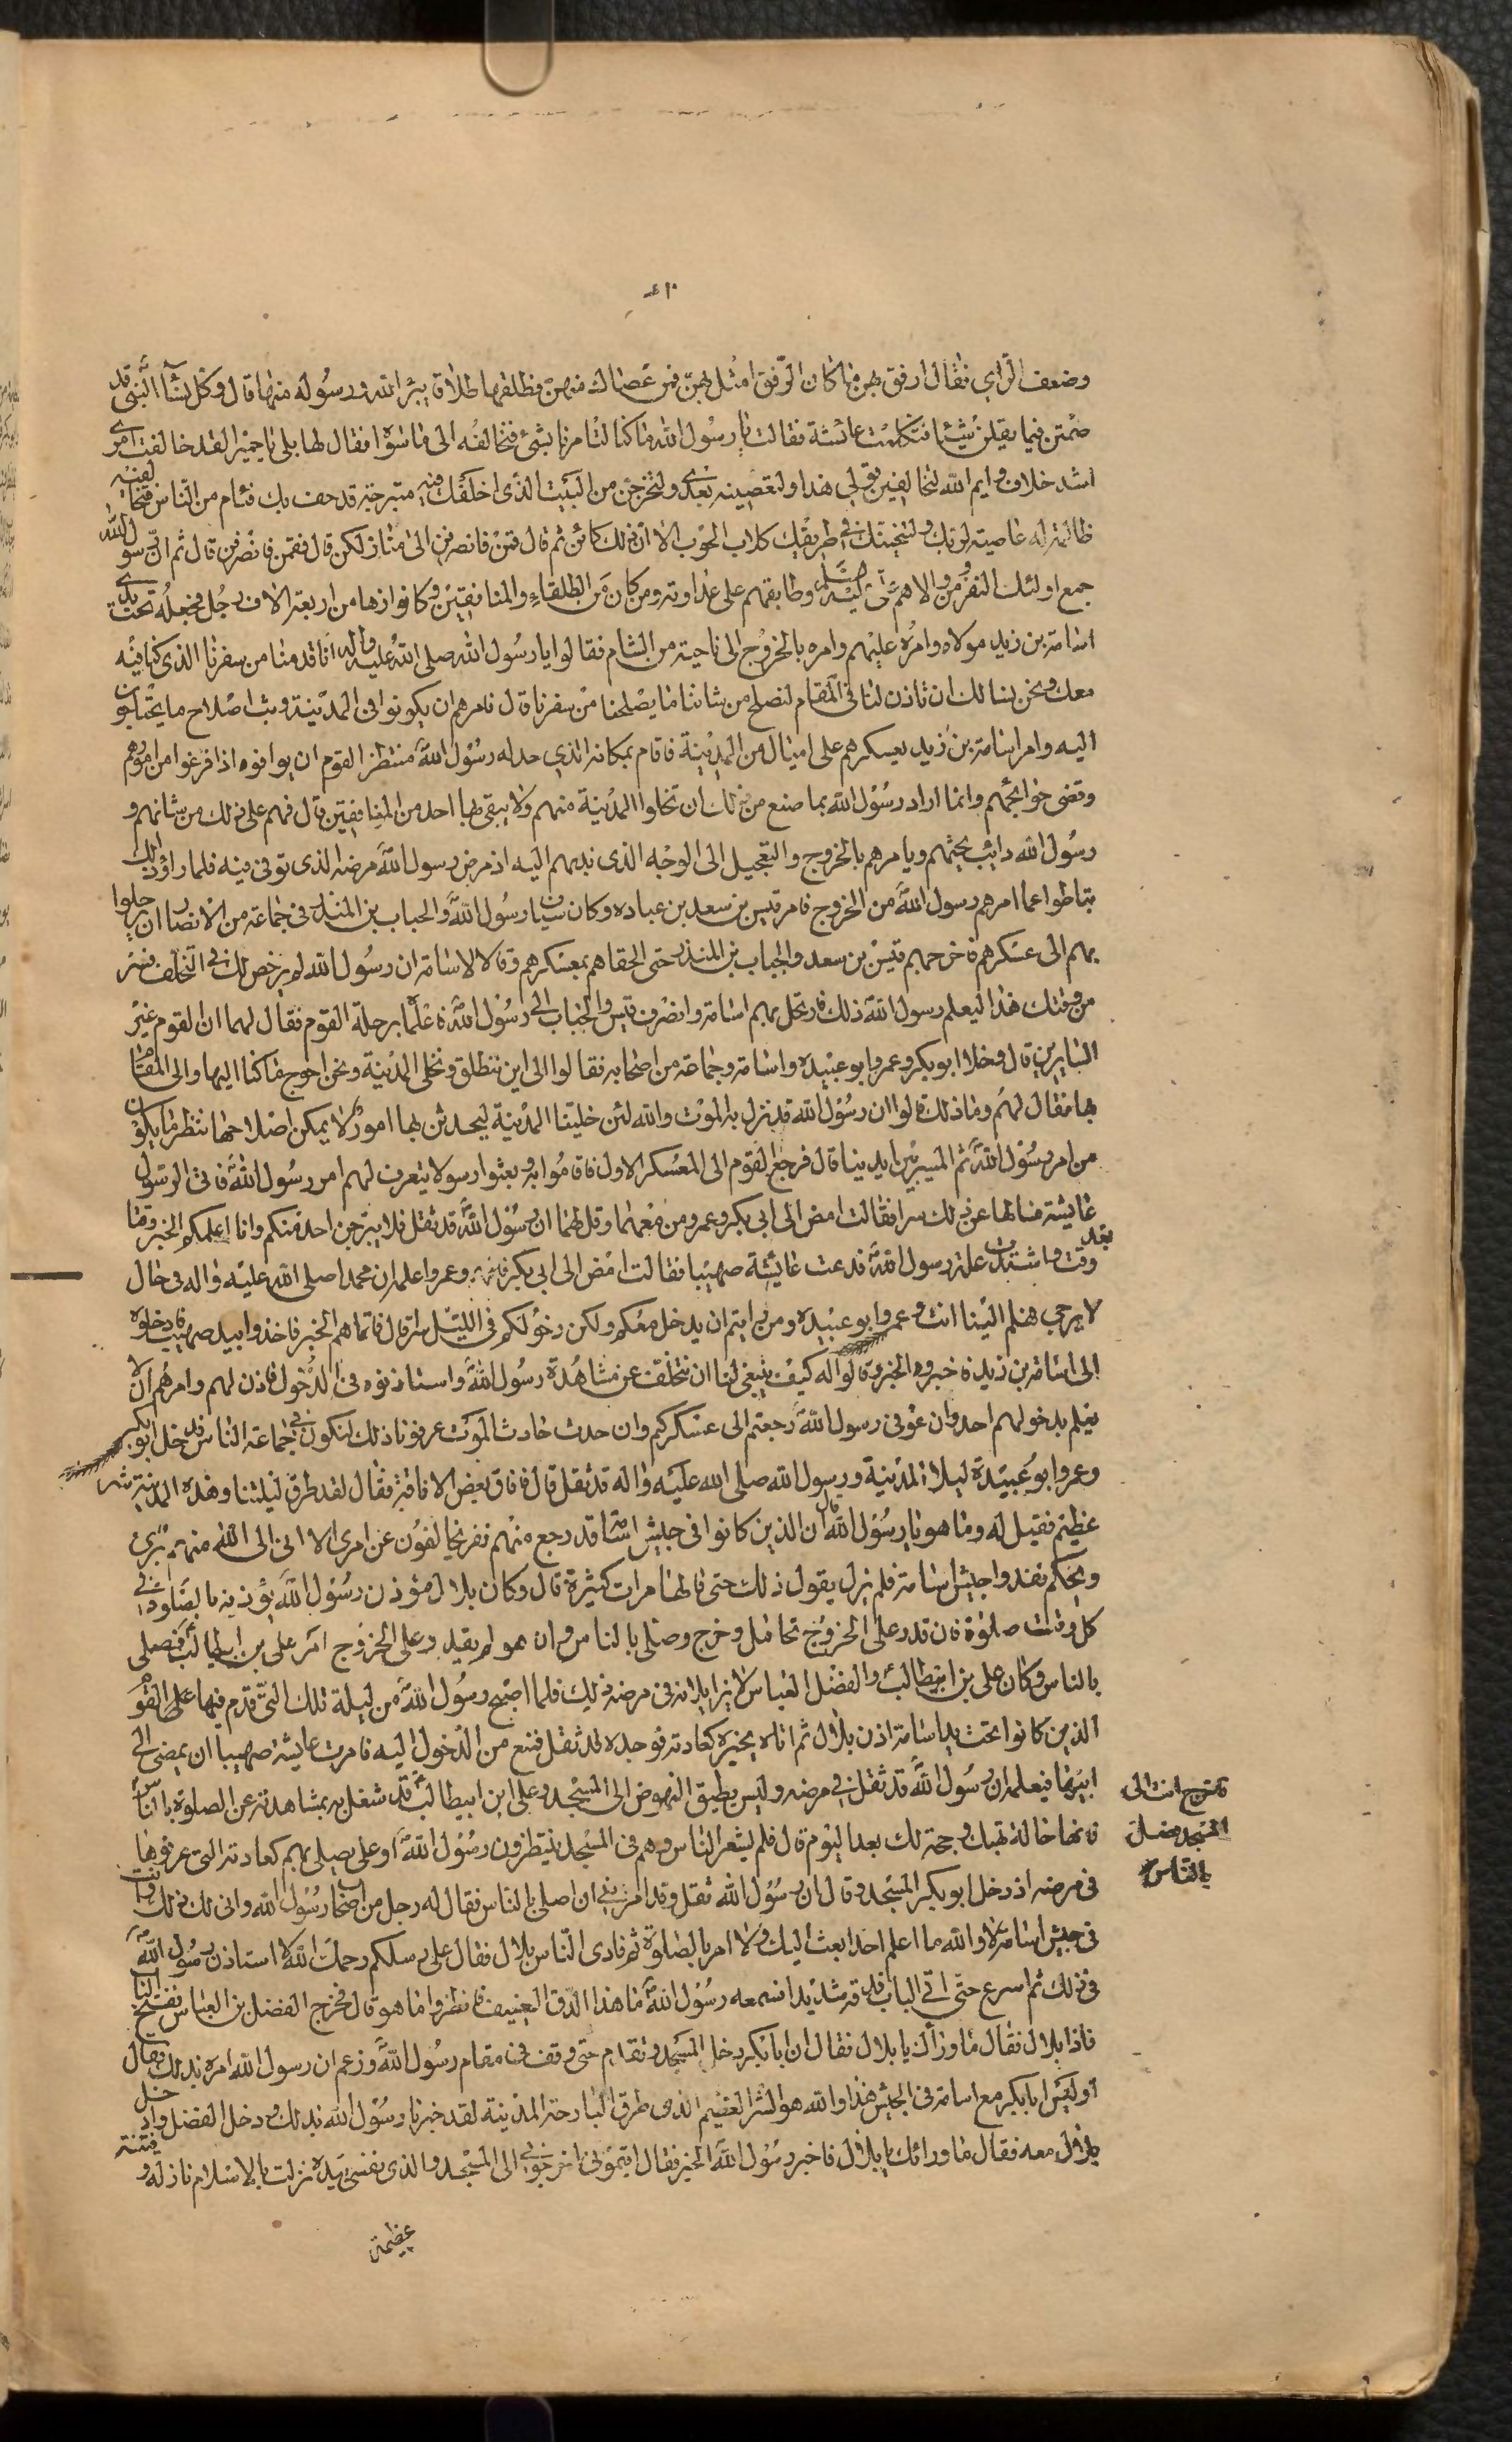 ٤١٠
وضعف الراي فقال ارفق بهن ما كان الرفق امثل بهن فمن عصاك منهن فطلقها طلاقا يبرا الله ورسوله منها قال وكل نسآ النبي قد
صمتن فما يقلن شيئا فتكلمت عائشة فقالت يا رسول الله ما كنا لتامرنا بشئ فنخالفه الى ما سواه فقال لها بلى يا حميرا لقد خالفت امري
اشد خلاف وايم الله لتخالفين قولي هذا ولتعصينه بعدي ولتخرجن من البيت الذي اخلفك فيه متبرجة قد حف بك فئام من الناس فتخالفينه
ظالمة له عاصية لربك ولتنبحنك في طريقك كلاب الحوب الا ان ذلك كائن ثم قال قمن فانصرفن الى منازلكن قال فقمن فانصرفن قال ثم ان رسول الله
جمع اولئك النفر ومن والاهم على علي وطابقهم على عداوته ومن كان من الطلقاء والمنافقين وكانوا زها من اربعة الاف رجل فجعله تحت يدي
اسامة بن زيد مولاه وامره عليهم وامره بالخروج الى ناحية من الشام فقالوا يا رسول الله صلى الله عليه واله انا قدمنا من سفرنا الذي كنا فيه
معك ونحن نسالك ان تاذن لنا في المقام لنصلح من شاننا ما يصلحنا من سفرنا قال فامرهم ان يكونوا في المدينة ريث اصلاح ما يحتاجون
اليه وامر اسامة بن زيد يعسكرهم على اميال من المدينة فاقام بمكانه الذي حد له رسول الله منتظر القوم ان يوافوه اذا فرغوا من امورهم
وقضى حوائجهم وانما اراد رسول الله بما صنع من ذلك ان تخلوا المدينة منهم ولا يبقى بها احد من المنافقين قال فهم على ذلك من شانهم و
رسول الله دائب يحثهم ويامرهم بالخروج والتعجيل الى الوجه الذي ندبهم اليه اذ مرض رسول الله مرضه الذي توفى فيه فلما راؤ ذلك
تباطوا عما امرهم رسول الله من الخروج فامر قيس بن سعد بن عباده وكان سياف رسول الله والحباب بن المنذر في جماعة من الانصار ان يرحلوا
بهم الى عسكرهم فاخرجهم قيس بن سعد والحباب بن المنذر حتى الحقاهم بمعسكرهم وقالا لاسامة ان رسول الله لم يرخص لك في التخلف فسر
من وقتك هذا ليعلم رسول الله ذلك فارتحل بهم اسامة وانصرف قيس والحباب الى رسول الله فاعلماه برحلة القوم فقال لهما ان القوم غير
السايرين قال وخلا ابو بكر وعمر وابو عبيده واسامة وجماعة من اصحابه فقالوا الى اين ننطلق ونخلي المدينة ونحن احوج ما كنا اليها والى المقام
بها فقال لهم وما ذلك قالوا ان رسول الله قد نزل به الموت والله لئن خلينا المدينة ليحدثن بها امور لا يمكن اصلاحها ننظر ما يكون
من امر رسول الله ثم المسير بين ايدينا قال فرجع القوم الى المعسكر الاول فاقاموا به وبعثوا رسولا يتعرف لهم امر رسول الله فاتى الرسول
عايشة فسالها عن ذلك سرا فقالت امض الى ابي بكر وعمر ومن معهما وقل لهما ان رسول الله قد ثقل فلا يبرحن احد منكم وانا اعلمكم الخبر وقتا
بعد وقت واشتدت علة رسول الله فدعت عايشة صهيبا فقالت امض الى ابي بكر وعمر واعلمه ان محمدا صلى الله عليه واله في حال
لا يرجى هلم الينا انت وعمر وابو عبيده ومن رايتم ان يدخل معكم ولكن دخولكم في الليل سرا قال فاتاهم الخبر فاخذوا بيد صهيب فادخلوه
الى اسامة بن زيد فاخبروه الخبر وقالوا له كيف ينبغي لنا ان نتخلف عن مشاهدة رسول الله واستاذنوه في الدخول فاذن لهم وامرهم الا
يعلم بدخولهم احد وان عوفى رسول الله رجعتم الى عسكركم وان حدث حادث الموت عرفونا ذلك لنكون في جماعة الناس فدخل ابو بكر
وعمر وابو عبيدة ليلا المدينة ورسول الله صلى الله عليه واله قد ثقل قال فافاق بعض الافاقة فقال لقد طرق ليلتنا هذه المدينة شر
عظيم فقيل له وما هو يا رسول الله قال ان الذين كانوا في جيش اسامة قد رجع منهم نفر يخالفون عن امري الا اني الى الله منهم بري
ويحكم نفذوا جيش اسامة فلم يزل يقول ذلك حتى قالها مرات كثيرة قال وكان بلال مؤذن رسول الله يؤذنه بالصلوة في
كل وقت صلوة فان قدر على الخروج تحامل وخرج وصلى بالناس وان هو لم يقدر على الخروج امر علي بن ابيطالب فصلى
بالناس وكان علي بن ابيطالب والفضل العباس لا يزايلانه في مرضه ذلك فلما اصبح رسول الله من ليلة تلك التي قدم فيها على القوم
الذين كانوا تحت يد اسامة اذن بلال ثم اتاه يخبره كعادته فوجده قد ثقل فمنع من الدخول اليه فامرت عايشة صهيبا ان يمضي الى
ابيها فيعلمه ان رسول الله قد ثقل في مرضه وليس يطيق النهوض الى المسجد وعلي ابن ابيطالب قد شغل به بمشاهدته عن الصلوة بالناس
فاخرج انت الى
المسجد فصل
بالناس
فانها حالة تهيك وحجة لك بعد اليوم قال فلم يشعر الناس وهم في المسجد ينتظرون رسول الله او علي يصلى بهم كعادته التي عرفوها
في مرضه اذ دخل ابو بكر المسجد وقال ان رسول الله ثقل وقد امرني ان اصلى بالناس فقال له رجل من اصحاب رسول الله وانى لك ذلك وانت
في جيش اسامة لا والله ما اعلم احدا بعث اليك ولا امر بالصلوة ثم نادى الناس بلال فقال على رسلكم رحمك الله لا استاذن رسول الله
في ذلك ثم اسرع حتى اتى الباب فدقه شديدا فسمعه رسول الله ما هذا الدق العنيف فانظروا ما هو قال فخرج الفضل بن العباس ففتح الباب
فاذا بلال فقال ما وراك يا بلال فقال ان ابا بكر دخل المسجد وتقدم حتى وقف في مقام رسول الله وزعم ان رسول الله امره بذلك فقال
او ليس ابا بكر مع اسامة في الجيش هذا والله هو الشر العظيم الذي طرق البارحة المدينة لقد خبرنا رسول الله بذلك ودخل الفضل وادخل
بلال معه فقال ما ورائك يا بلال فاخبر رسول الله الخبر فقال اقيموني اخرجوني الى المسجد والذي نفسي بيده نزلت بالاسلام نازلة وفتنة
عظيمة